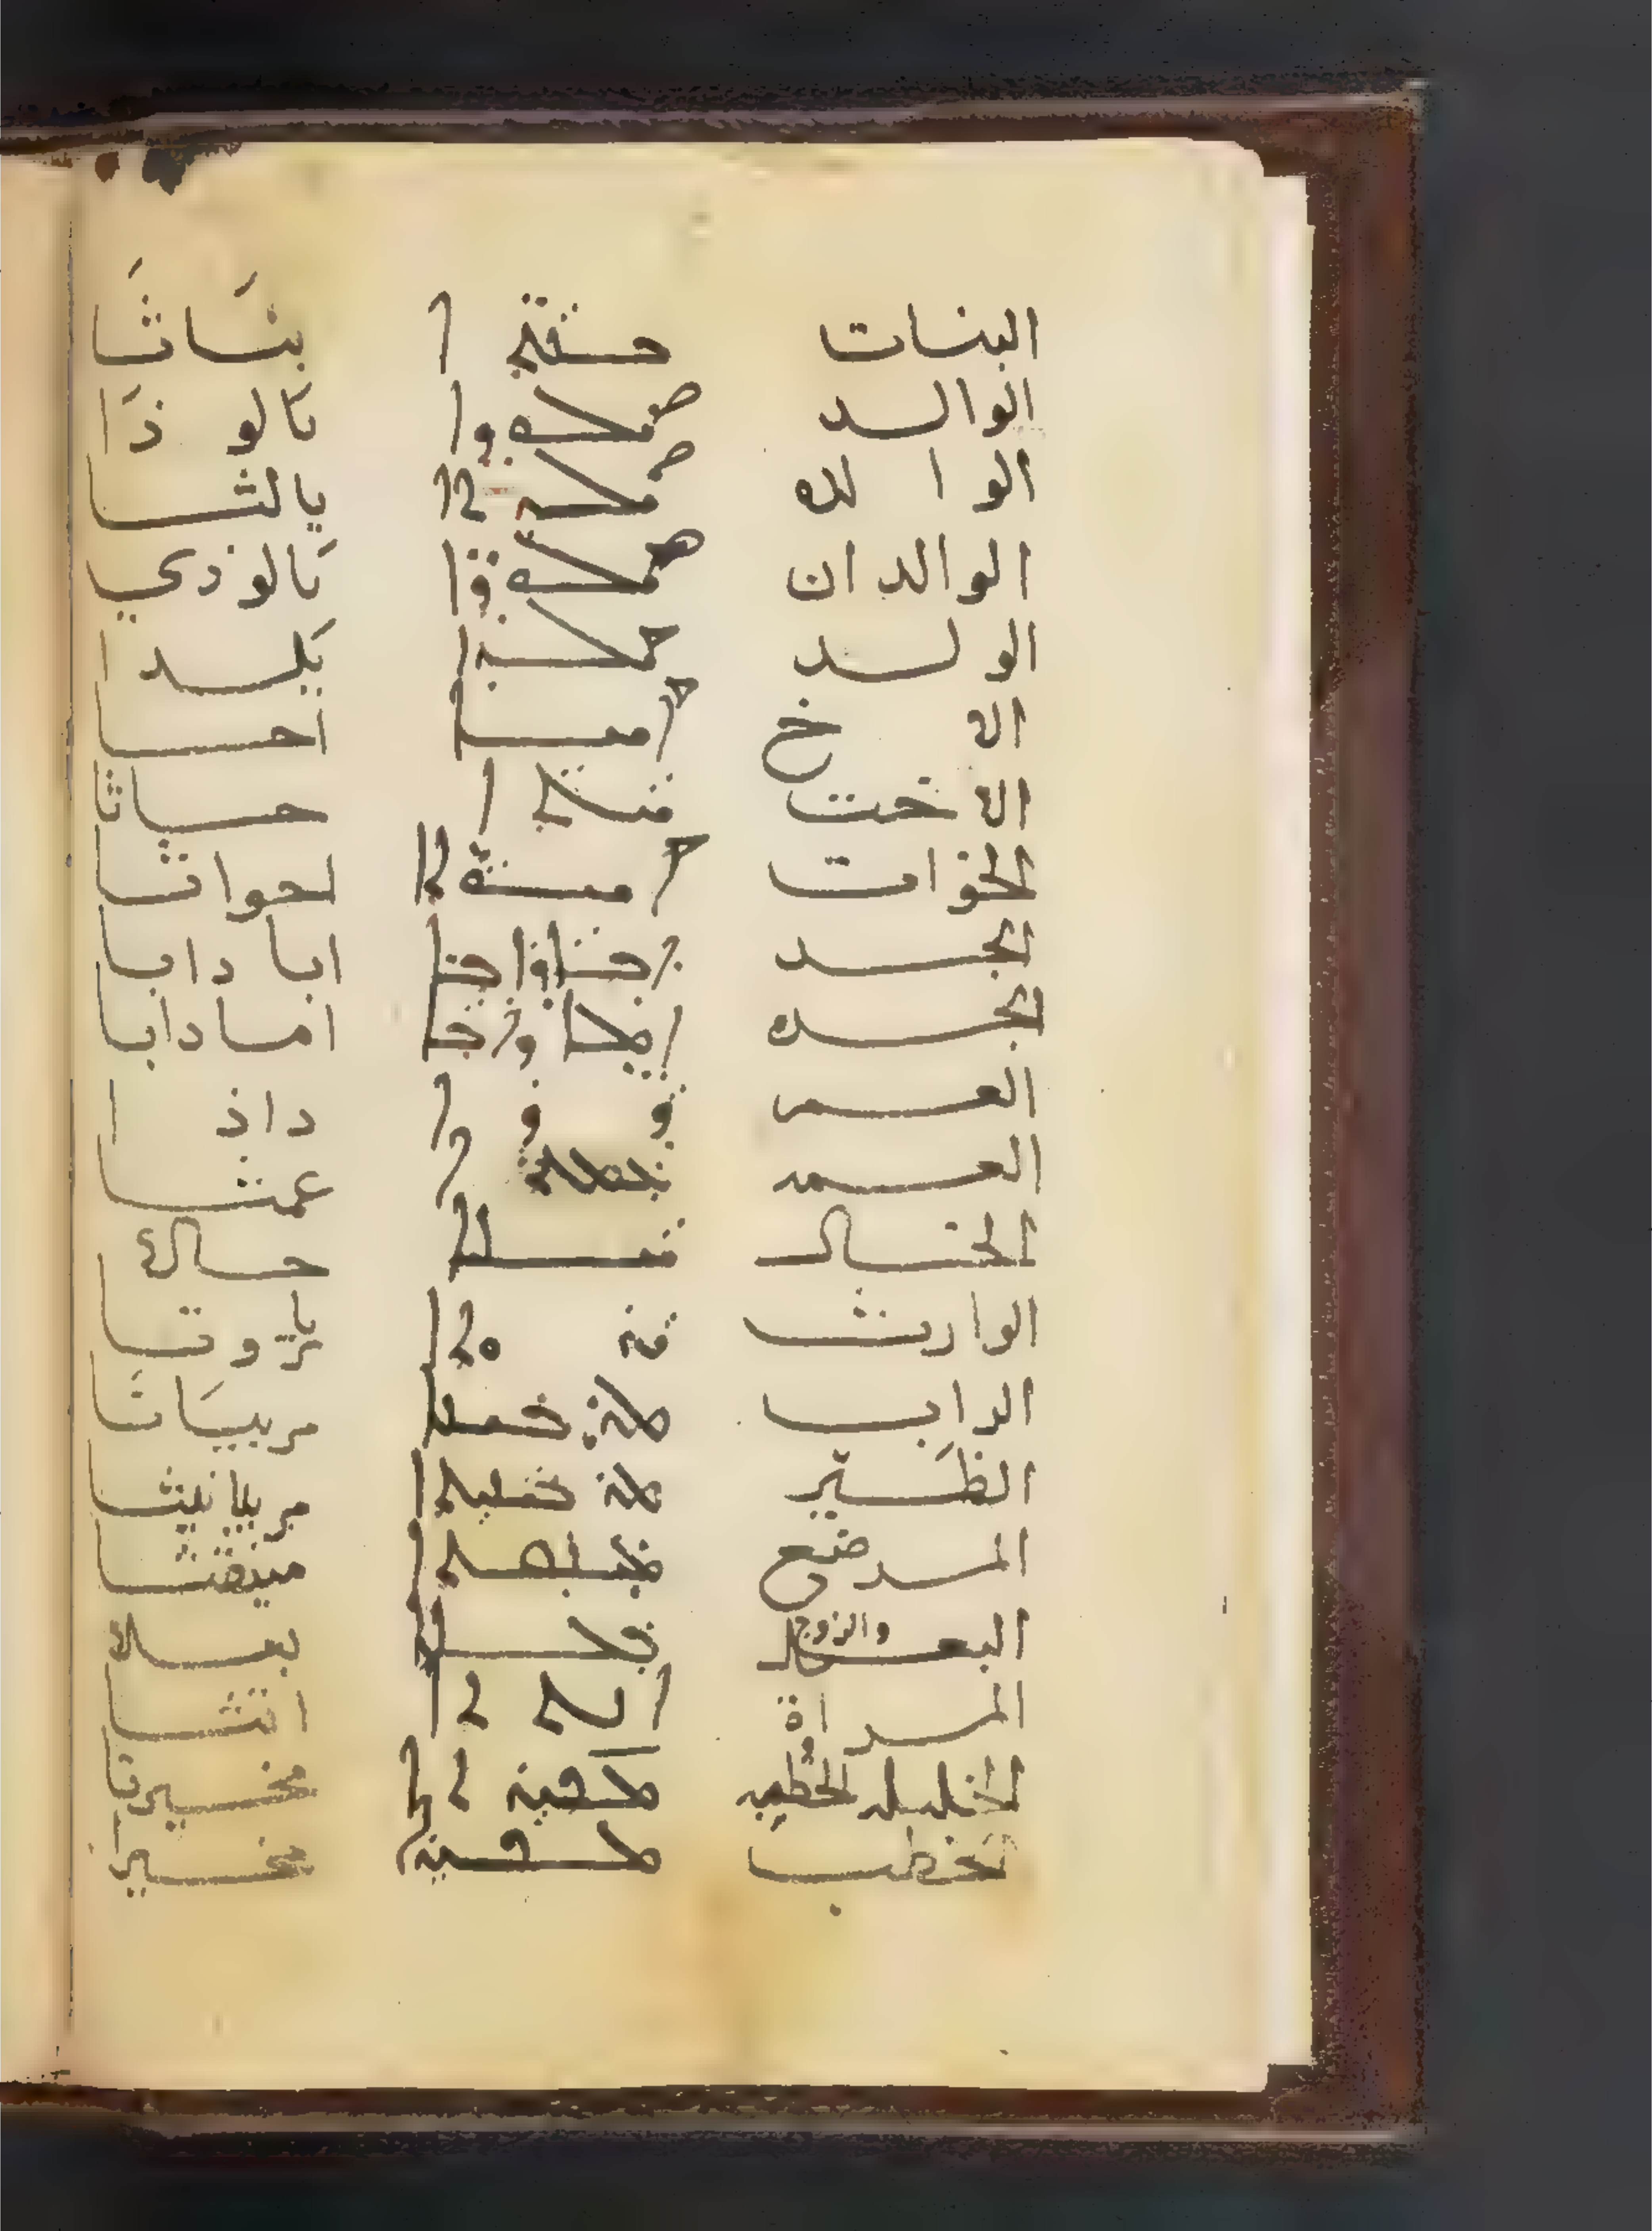 البنات ܒܢ̈ܬܐ بنَاثَا
الوالد ܝܠܘܕܐ يَالوذَا
الوالده ܝܠܕܬܐ يالثا
الوالدان ܝܠܘܕ̈ܐ يَالوذي
الولد ܝܠܕܐ يَلدا
الاخ ܐܚܐ احا
الاخت ܚܬܐ حياثا
الخوات ܐܚܘ̈ܬܐ احواثا
الجد ܐܒܐ ܕܐܒܐ ابا دابا
الجده ܐܡܐ ܕܐܒܐ اما دابا
العم ܕܕܐ داذا
العمه ܥܡܬܐ عمثا
الخال ܚܠܐ حالا
الوارث ܝܪܬܐ يَروتا
الداب ܡܪܒܝܢܐ مربيَانَا
الظَير ܡܪܒܝܢܝܬܐ مربيانيثا
المرضع ܡܝܢܩܬܐ مينقثا
البعل والزوج ܒܥܠܐ بعلا
المراة ܐܢܬܬܐ انثثا
الخليله الخطيبه ܡܟܝܪܬܐ مخيرتا
الخطيب ܡܟܝܪܐ مخيرا